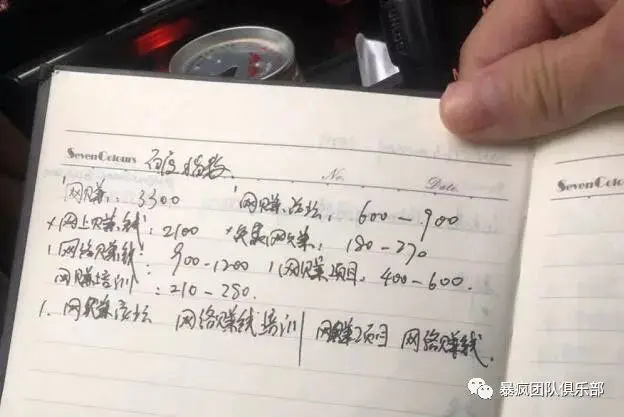 SevenColours 百度指数 No. Date.
网赚:3300 网赚论坛:600-900
×网上赚钱:2100 ×兼职网赚:180-270
1网络赚钱:900-1200 1网赚项目:400-600.
网赚培训:210-280.
1.网赚论坛 网络赚钱培训 | 网赚项目 网络赚钱.
SevenColo
暴疯团队俱乐部